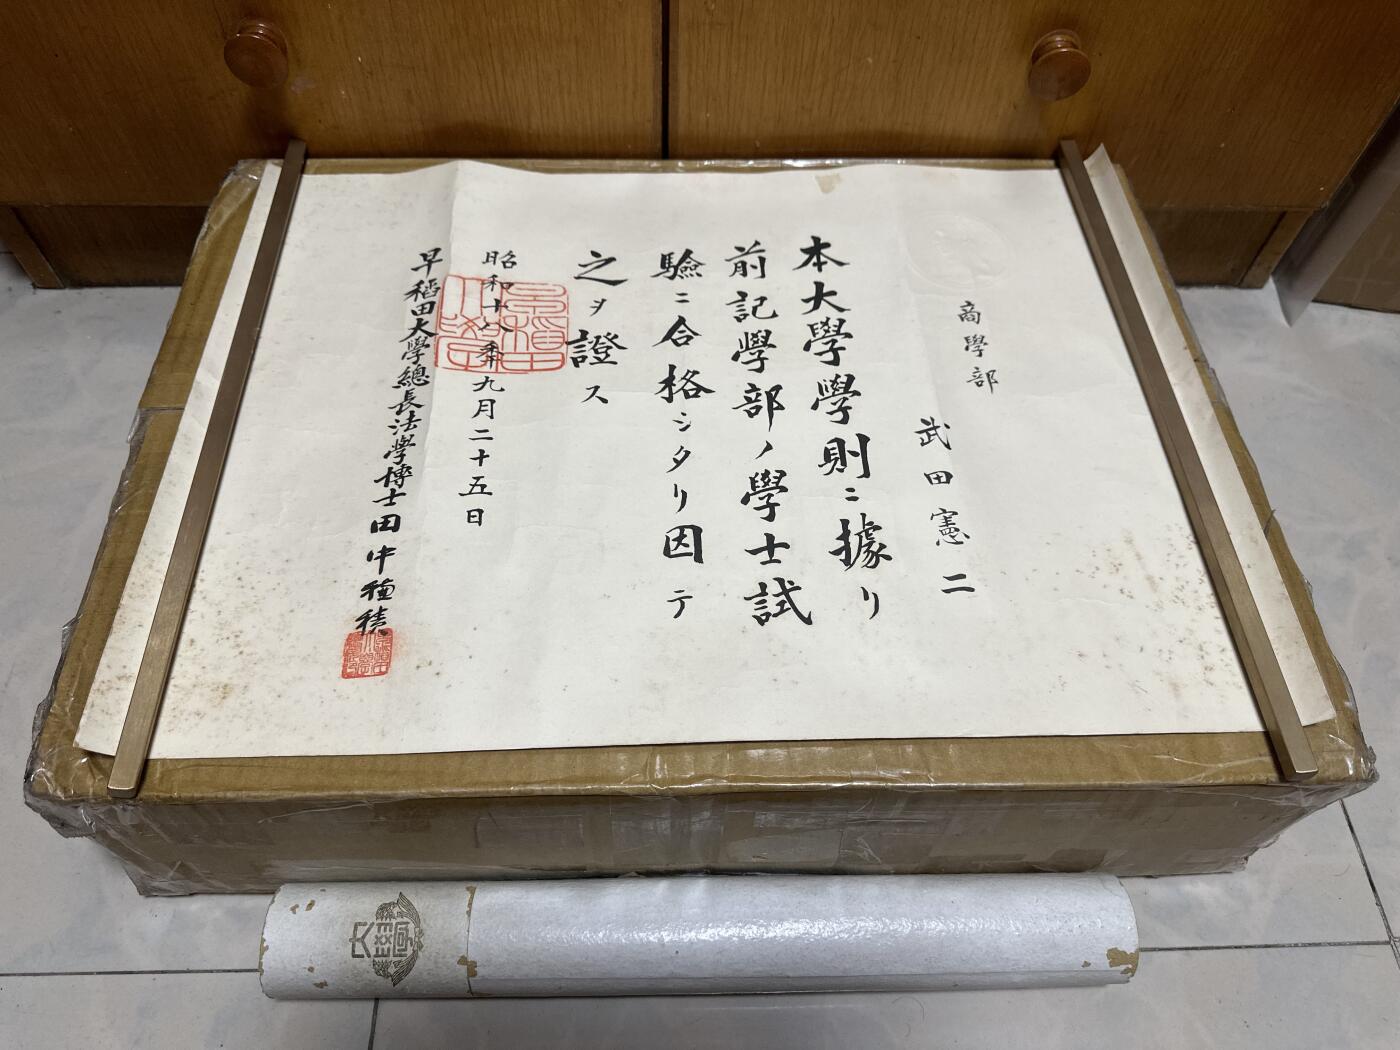 商學部
武田憲二
本大學學則ニ據リ
前記學部ノ學士試
驗ニ合格シタリ因テ
之ヲ證ス
昭和十八年九月二十五日
早稲田大學總長法學博士田中穗積